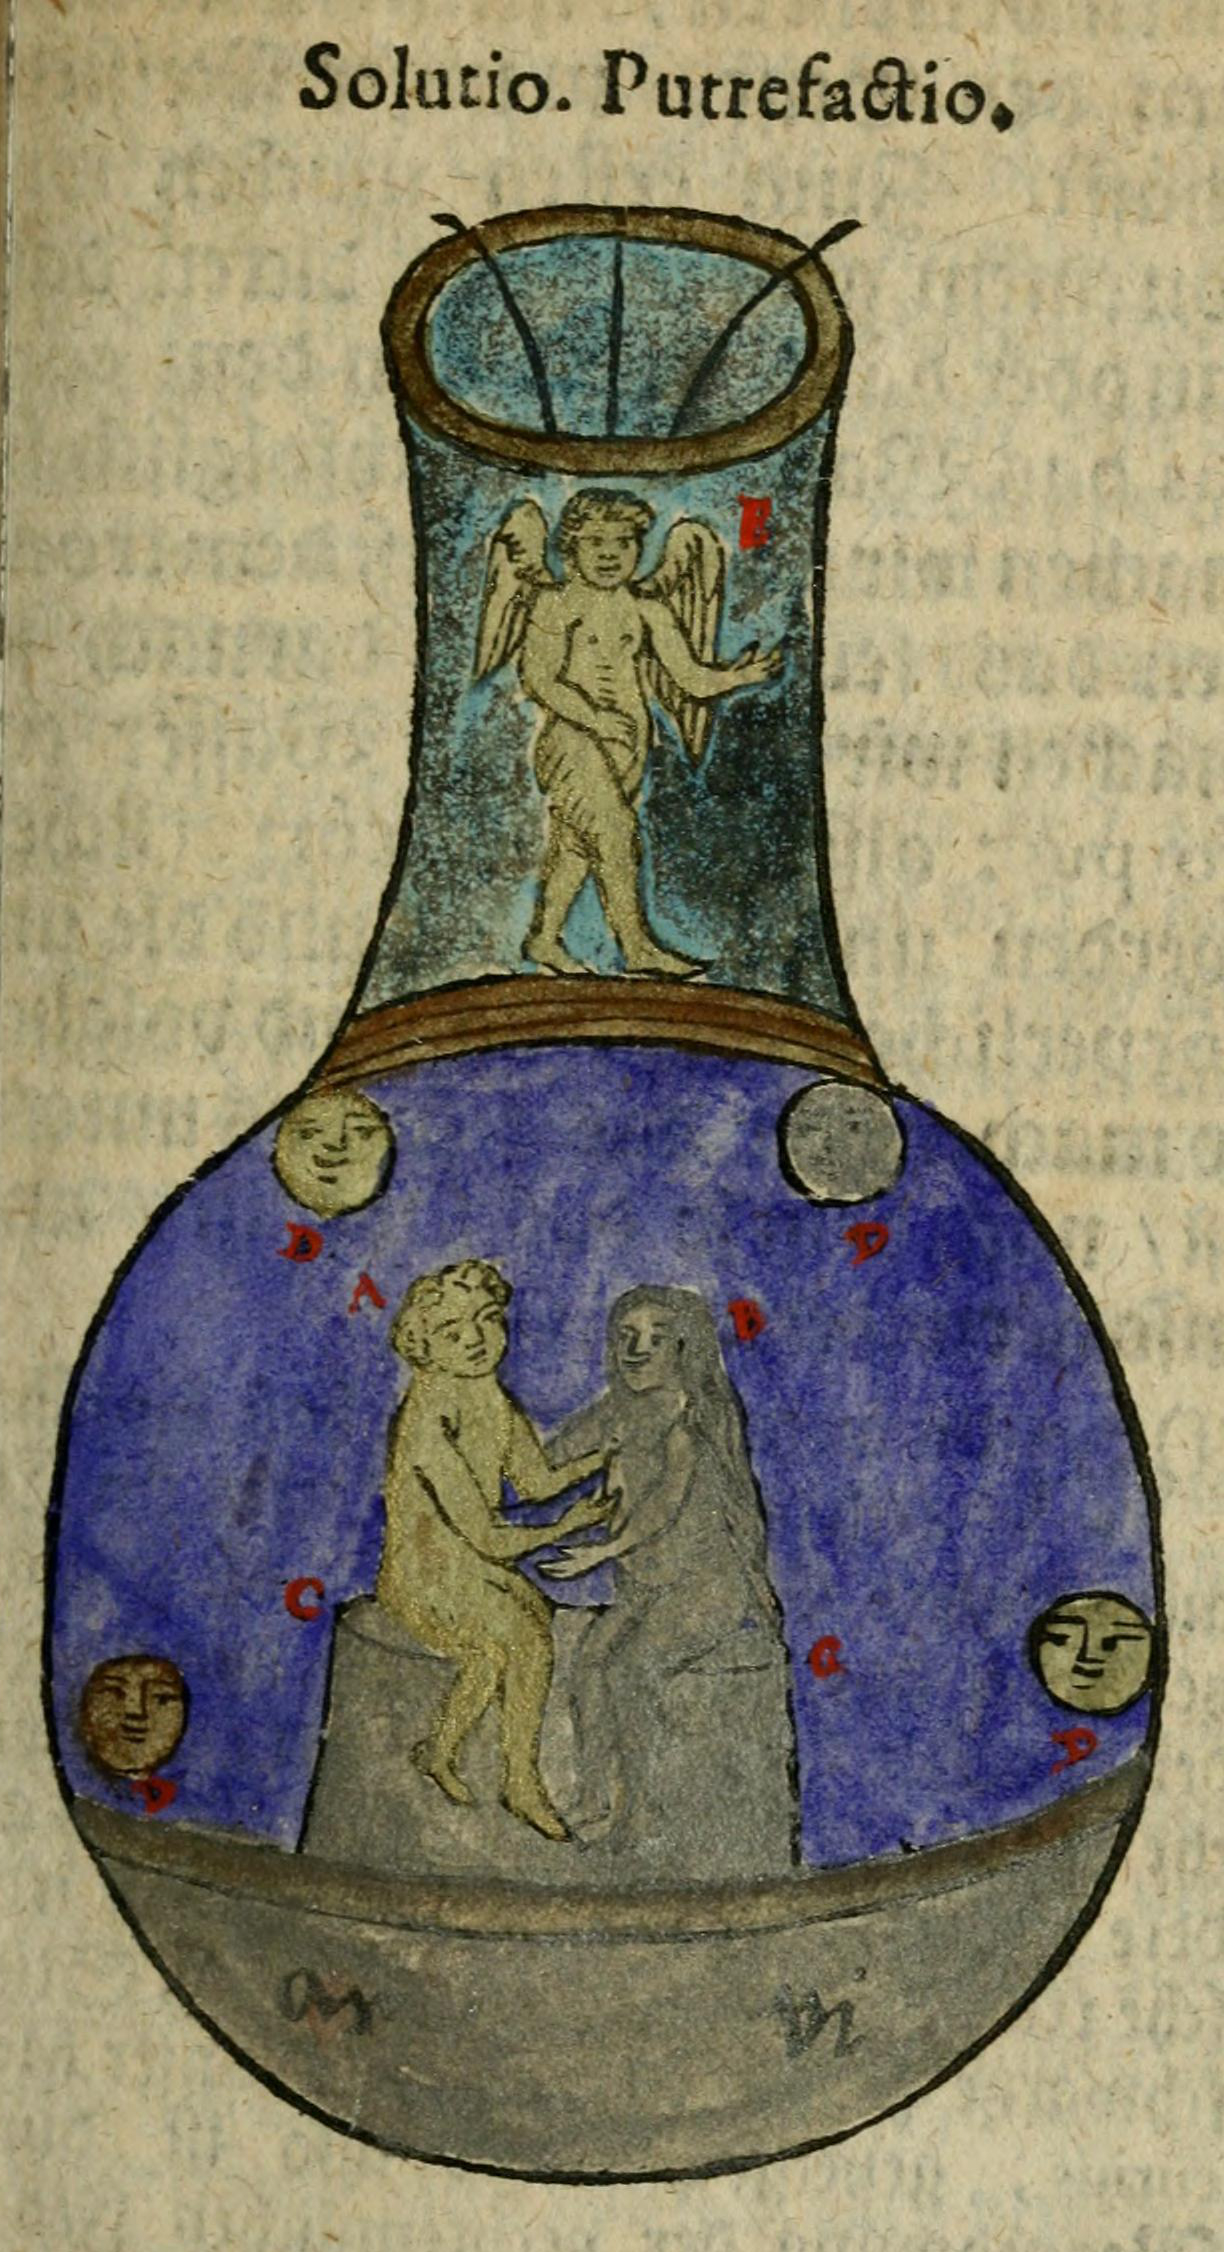 Solutio. Putrefactio.
E
D D
A B
C
C
D D